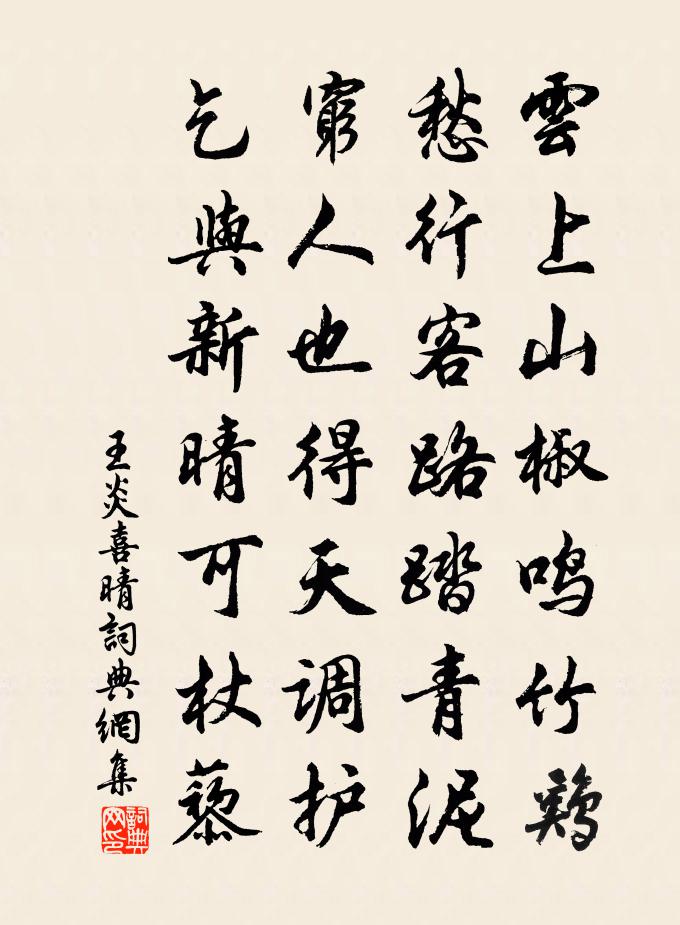 雲上山椒鸣竹鷄
愁行客路踏青泥
窮人也得天调护
乞與新晴可杖藜
王炎喜晴詞典網集
詞典网印